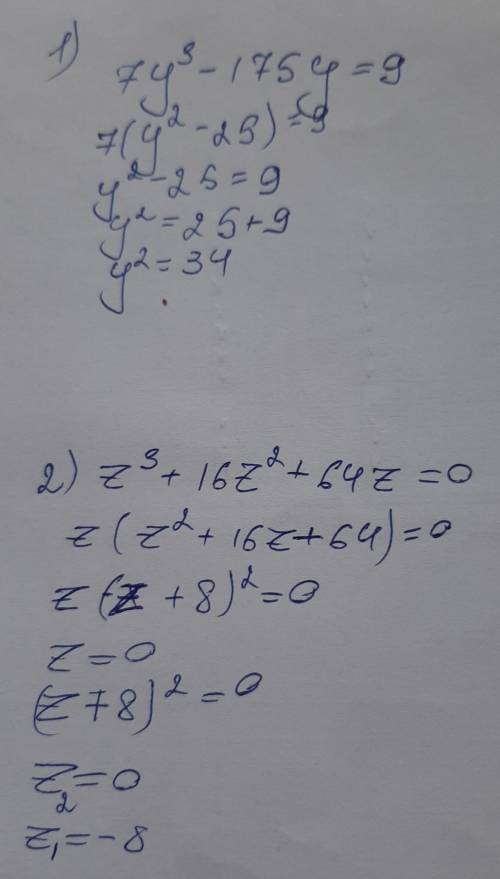 1)
7y³ - 175y = 9
7(y² - 25) = 9
y² - 25 = 9
y² = 25 + 9
y² = 34
2) z³ + 16z² + 64z = 0
z(z² + 16z + 64) = 0
z(z + 8)² = 0
z = 0
(z + 8)² = 0
z₂ = 0
z₁ = -8